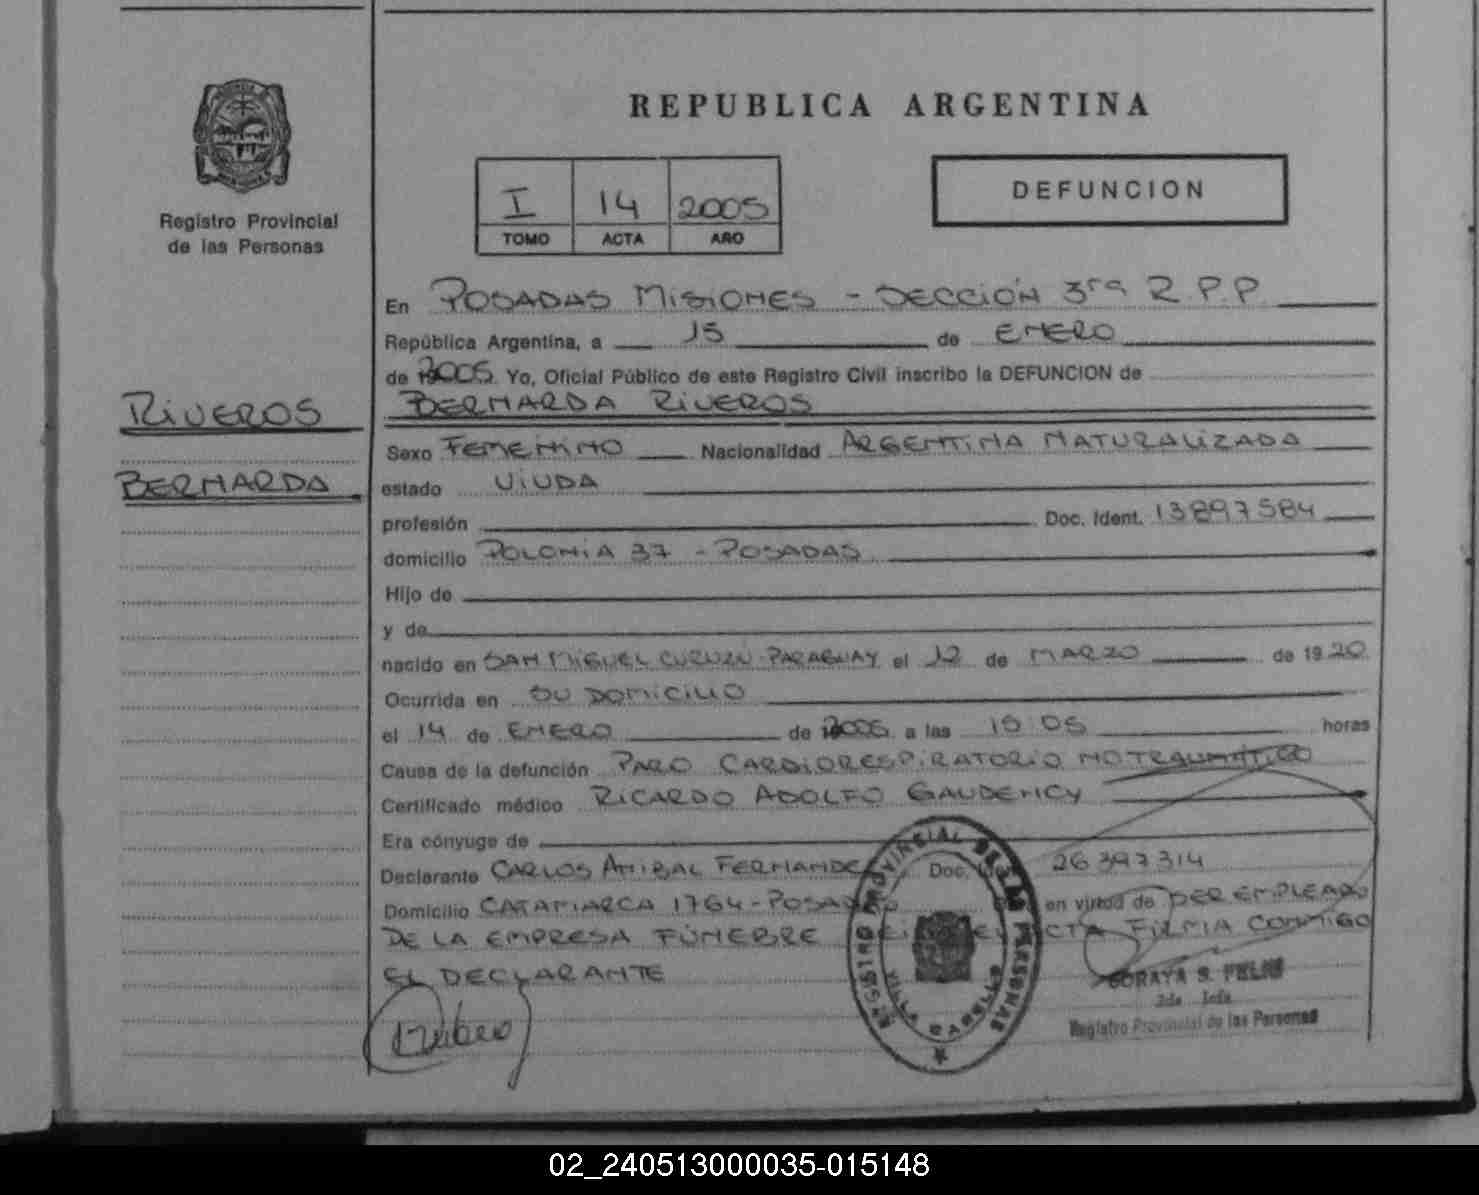 REPUBLICA ARGENTINA
Registro Provincial
de las Personas
I 14 2005
TOMO ACTA AÑO
DEFUNCION
En POSADAS MISIONES - SECCIÓN 3ra R.P.P.
República Argentina, a 15 de ENERO
de 2005. Yo, Oficial Público de este Registro Civil inscribo la DEFUNCION de
RIVEROS
BERNARDA RIVEROS
Sexo FEMENINO Nacionalidad ARGENTINA NATURALIZADA
BERNARDA
estado VIUDA
profesión Doc. Ident. 13897584
domicilio POLONIA 37 - POSADAS
Hijo de
y de
nacido en SAN MIGUEL CURUZU-PARAGUAY el 12 de MARZO de 1920
Ocurrida en SU DOMICILIO
el 14 de ENERO de 2005 a las 15:05 horas
Causa de la defunción PARO CARDIORESPIRATORIO NO TRAUMÁTICO
Certificado médico RICARDO ADOLFO GAUDENCY
Era cónyuge de
Declarante CARLOS ANIBAL FERNANDE Doc. Iden 26397314
Domicilio CATAMARCA 1764-POSADAS en virtud de SER EMPLEADO
DE LA EMPRESA FÚNEBRE ACTA FIRMA CONMIGO
EL DECLARANTE
REGISTRO PROVINCIAL DE LAS PERSONAS
VILLA CABELLO
SORAYA S.
2da Jefa
Registro Provincial de las Personas
02_240513000035-015148